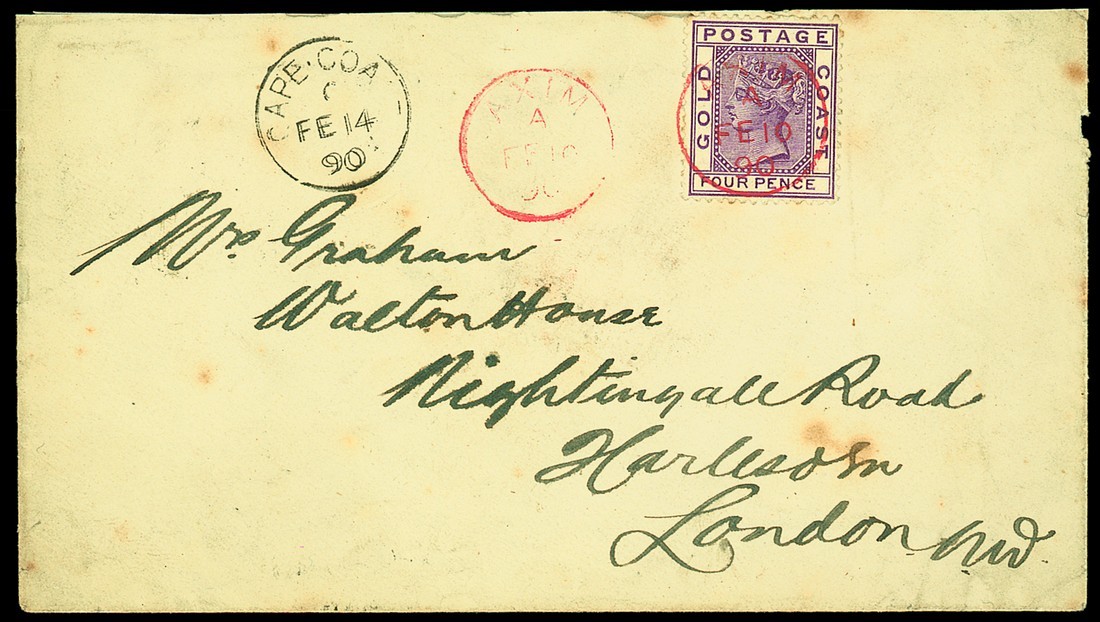 CAPE·COA
C
FE 14
90
AXIM
A
FE 10
90
POSTAGE
GOLD
COAST
FOUR PENCE
A
FE 10
90
Mrs Graham
Walton House
Nightingall Road
Harlesden
London NW